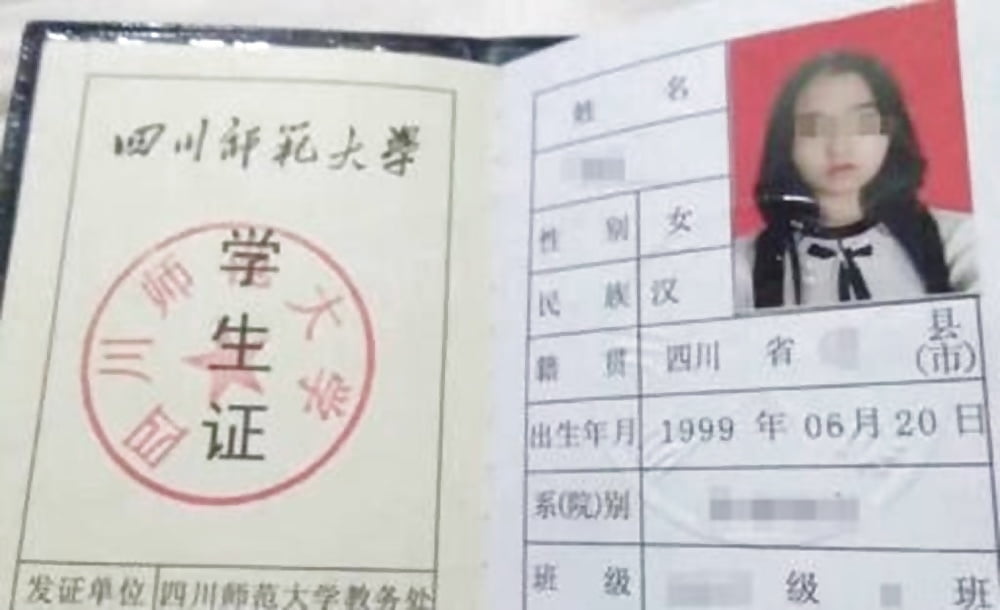 四川师范大学
四川师范大学
学生证
发证单位 四川师范大学教务处
姓名
性别 女
民族 汉
籍贯 四川 省 县(市)
出生年月 1999 年 06月 20 日
系(院)别
班级 级 班